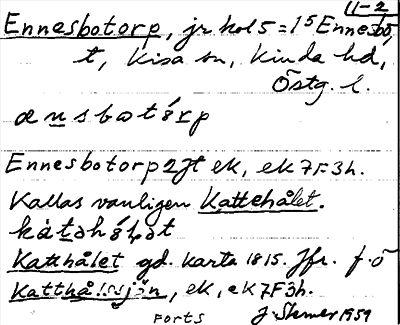 11-2
Ennesbotorp, jr kol 5 = 15 Ennesbo,
t, Kisa sn, Kinda hd,
Östg. l.
ænsbotårp
Ennesbotorp 2 Jt ek, ek 7F3h.
Kallas vanligen Kattehålet.
Katthålet gd. karta 1815. Jfr. f. ö
Katthålssjön, ek, ek 7F3h.
Forts J. Stemer 1959